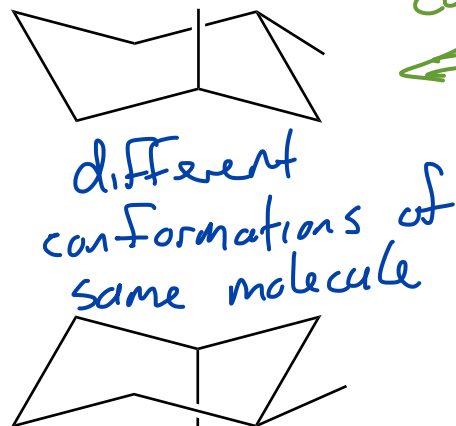 different
conformations of
same molecule